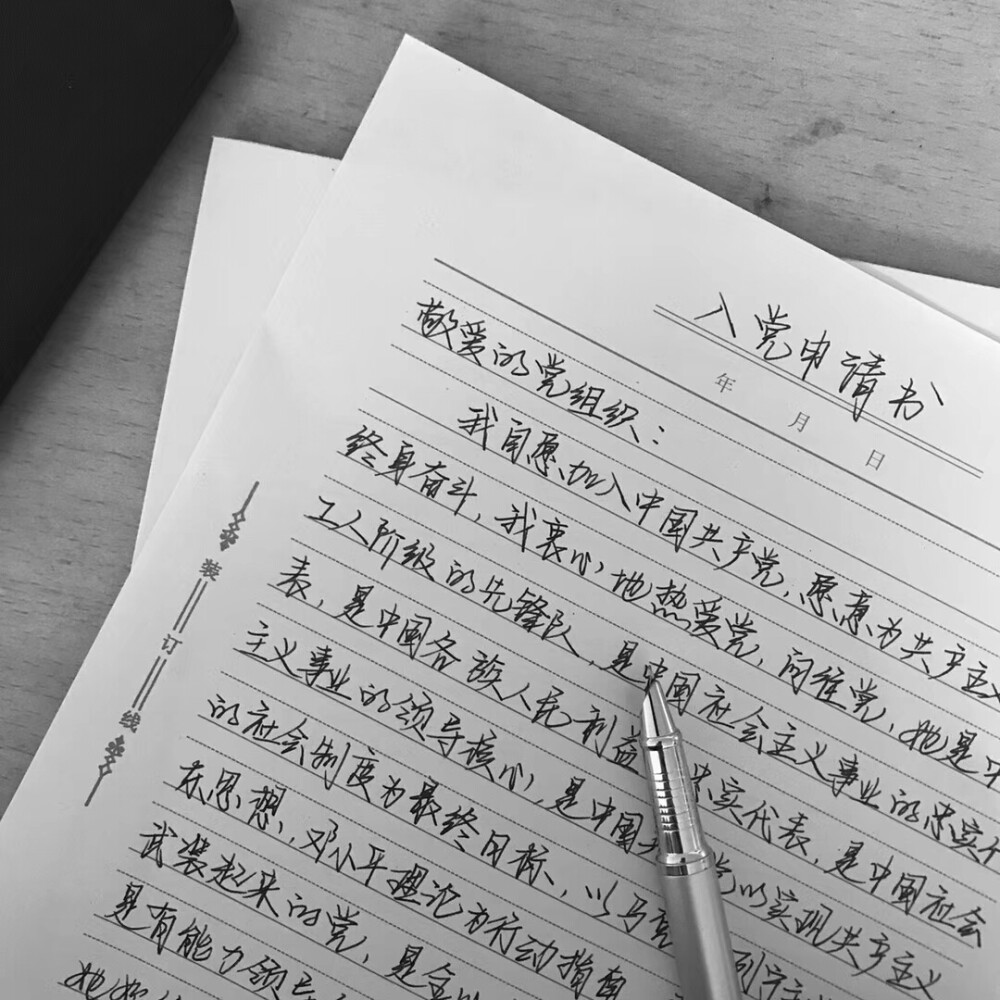 入党申请书
年 月 日
敬爱的党组织：
我自愿加入中国共产党，愿意为共产主义
终身奋斗，我衷心地热爱党，向往党，她是中
工人阶级的先锋队，是中国社会主义事业的忠实代
表，是中国各族人民利益 忠实代表，是中国社会
主义事业的领导核心，是中国共 党以实现共产主义
的社会制度为最终目标，以马克 列宁主
东思想，邓小平理论为行动指南
武装起来的党，是全
是有能力领导
她
装订线